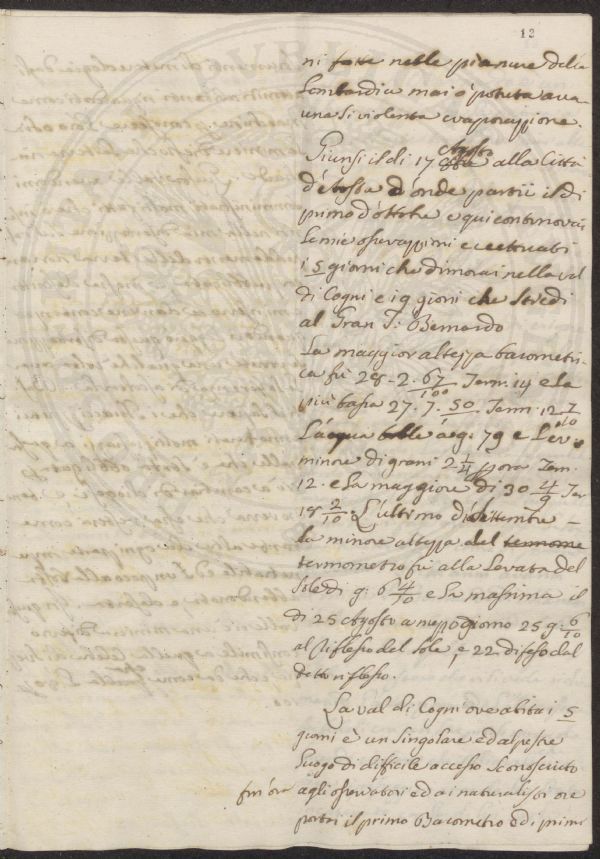 12
ni fatte nelle pianure della
Lombardia mai ò potuta ave
una si violenta evaporazione.
Giunsi il di 17 Agosto alla Città
d'Aosta d'onde partii il di
primo d'ottobre e qui continovai
le mie osservazzioni eccettuati
i 5 giorni che dimorai nella val
di Cogni e i 9 giorni che stiedi
al Gran S: Bernardo
La maggior altezza barometri-
ca fù 28. 2. 67/100 Term. 14 e la
più bassa 27. 7. 50 Term: 12 7/10
L'acqua bolle a g: 79 e l'ev.
minore di grani 2 1/4 Term.
12. e la maggiore di 30 4/9 Ter
18 2/10. L'ultimo di Settembre
la minore altezza del termome
termometro fù alla levata del
sole di g: 6 4/10 e la massima il
di 25 Agosto a mezzogiorno 25 g. 6/10
al riflesso del sole, e 22. difeso dal
detto riflesso.
La val di Cogni ove abitai 5
giorni è un singolare ed alpestre
luogo di difficile accesso sconosciuto
fin'ora agli osservatori ed ai naturalisti ove
portai il primo Barometro ed i primi